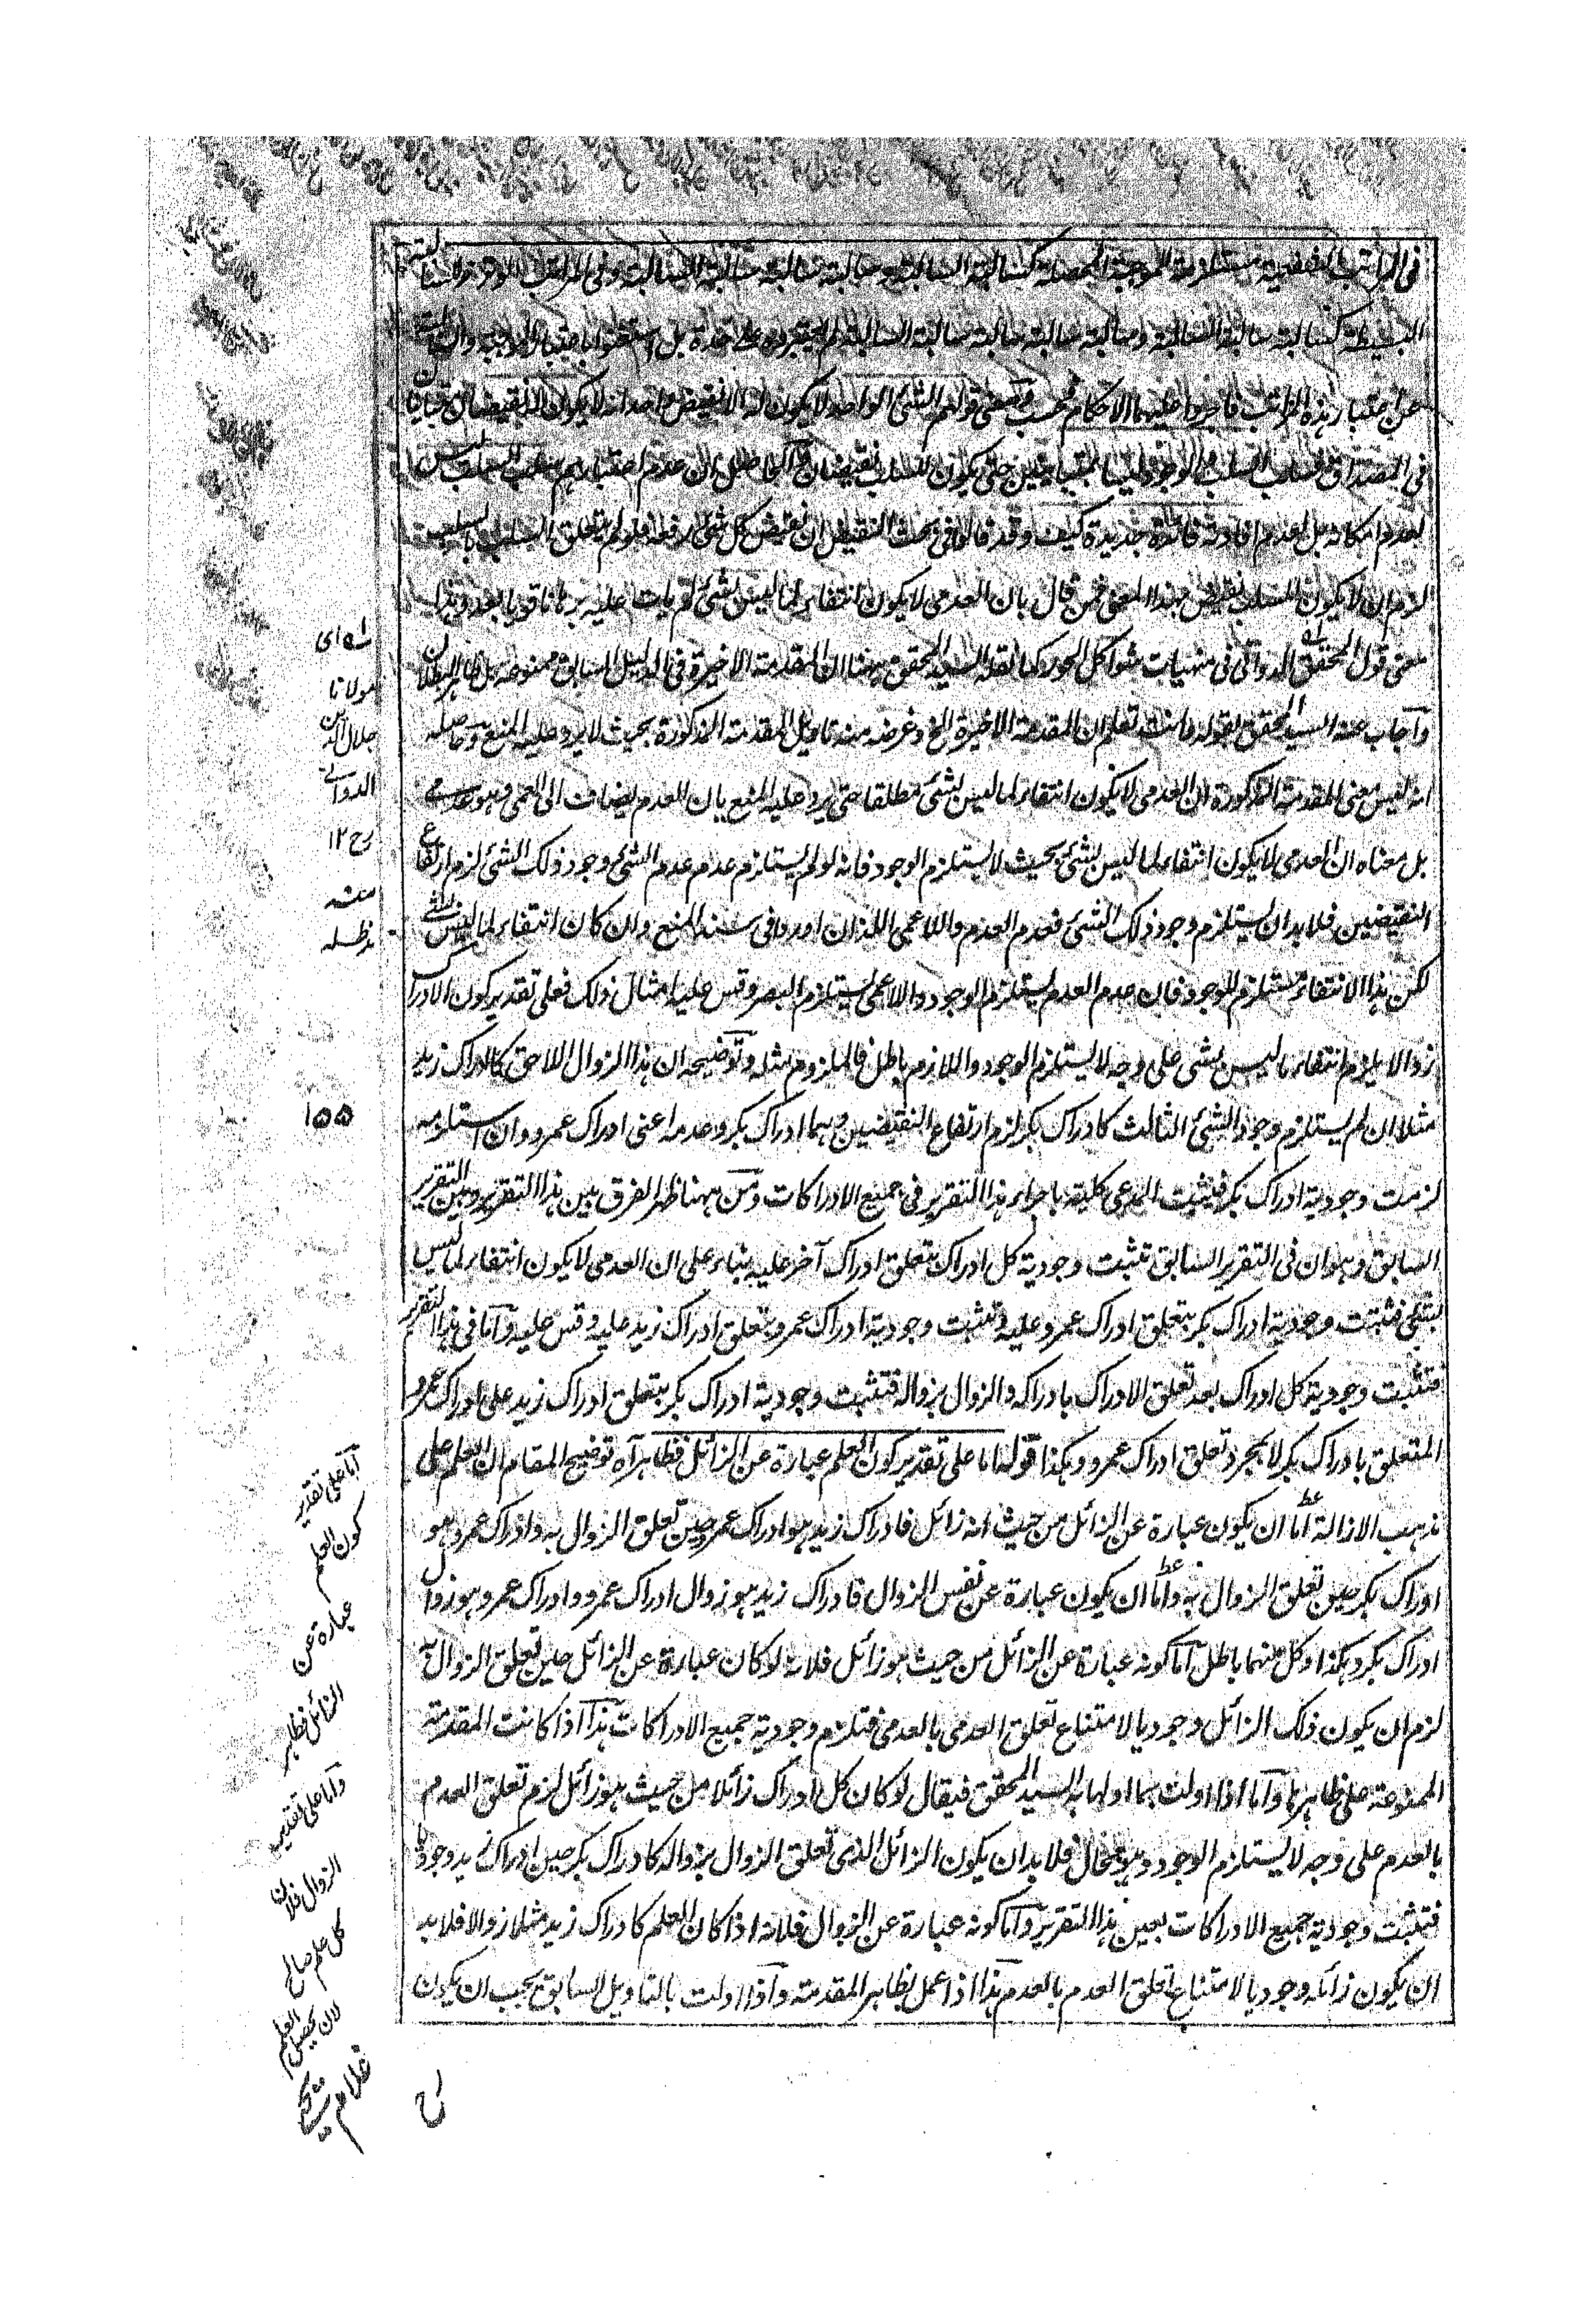 في المراتب الشفعية مستلزمة للموجبة المحصلة كسالبة السالبة وسالبة سالبة سالبة السالبة وفي المراتب الوترية للسالبة
البسيطة كسالبة سالبة السالبة وسالبة سالبة سالبة سالبة السالبة لم يعتبروه على حدة بل استغنوا باعتبار الموجبة والسالبة
عن اعتبار هذه المراتب فاجروا عليهما الاحكام فحسب ومعنى قولهم الشئ الواحد لا يكون له الا نقيض واحد انه لا يكون له نقيضان متباينان
في المصداق وسلب السلب والوجود ليسا بمتباينين حتى يكون للسلب نقيضان عدم اعتبارهم سلب السلب ليس
لعدم امكانه بل لعدم افادته فائدة جديدة كيف وقد قالوا في بحث النقيض ان نقيض كل شئ رفعه فلو لم يتعلق السلب بالسلب
لزم ان لا يكون للسلب نقيض بهذا المعنى فمن قال بان العدمي لا يكون انتفاء لما ليس بشئ لم يات عليه برهانا قويا بعد وهذا
معنى قول المحقق الدواني في منهيات شواكل الحور كما نقله السيد المحقق ههنا ان المقدمة الاخيرة في الدليل السابق ممنوعة بل ظاهر البطلان
وآجاب عنه السيد المحقق بقوله وانت تعلم ان المقدمة الاخيرة الخ وغرضه منه تاويل المقدمة المذكورة بحيث لا يرد عليه المنع وحاصله
انه ليس معنى المقدمة المذكورة ان العدمي لا يكون انتفاء لما ليس بشئ مطلقا حتى يرد عليه المنع بان العدم يضاف الى العمى وهو عدمي
بل معناه ان العدمي لا يكون انتفاء لما ليس بشئ بحيث لا يستلزم الوجود فانه لو لم يستلزم عدم عدم الشئ وجود ذلك الشئ لزم ارتفاع
النقيضين فلا بد ان يستلزم وجود ذلك الشئ فعدم العدم واللاعمى اللذان اوردا في سند المنع وان كان انتفاء لما ليس بشئ
لكن هذا الانتفاء مستلزم للوجود فان عدم العدم يستلزم الوجود واللاعمى يستلزم البصر وقس عليه امثال ذلك فعلى تقدير كون الادراك
زوالا يلزم انتفاء ما ليس بشئ على وجه لا يستلزم الوجود واللازم باطل فالملزوم مثله وتوضيحه ان هذا الزوال اللاحق كادراك زيد
مثلا ان لم يستلزم وجود الشئ الثالث كادراك بكر لزم ارتفاع النقيضين وهما ادراك بكر وعدمه اعنى ادراك عمرو وان استلزمه
لزمت وجودية ادراك بكر فيثبت المدعى كلية باجراء هذا التقرير في جميع الادراكات ومن ههنا ظهر الفرق بين هذا التقرير وبين التقرير
السابق وهو ان في التقرير السابق تثبت وجودية كل ادراك بتعلق ادراك آخر عليه بناء على ان العدمي لا يكون انتفاء لما ليس
بشئ فثبتت وجودية ادراك بكر بتعلق ادراك عمرو عليه وتثبت وجودية ادراك عمرو بتعلق ادراك زيد عليه وقس عليه وآما في هذا التقرير
فتثبت وجودية كل ادراك بعد تعلق الادراك بادراكه والزوال بزواله فتثبت وجودية ادراك بكر بتعلق ادراك زيد على ادراك عمرو
المتعلق بادراك بكر لا بمجرد تعلق ادراك عمرو وهكذا قوله اما على تقدير كون العلم عبارة عن الزائل فظاهر آه توضيح المقام ان العلم على
مذهب الازالة اما ان يكون عبارة عن الزائل من حيث انه زائل فادراك زيد هو ادراك عمرو حين تعلق الزوال به وادراك عمرو هو
ادراك بكر حين تعلق الزوال به وآما ان يكون عبارة عن نفس الزوال فادراك زيد هو زوال ادراك عمرو وادراك عمرو هو زوال
ادراك بكر وهكذا وكل منهما باطل آما كونه عبارة عن الزائل من حيث هو زائل فلانه لو كان عبارة عن الزائل حين تعلق الزوال به
لزم ان يكون ذلك الزائل وجوديا لامتناع تعلق العدمي بالعدمي فتلزم وجودية جميع الادراكات هذا اذا كانت المقدمة
الممنوعة على ظاهرها وآما اذا اولت بما اولها به السيد المحقق فيقال لو كان كل ادراك زائلا من حيث هو زائل لزم تعلق العدم
بالعدم على وجه لا يستلزم الوجود وهو محال فلا بد ان يكون الزائل الذي تعلق الزوال بزواله كادراك بكر حين ادراك زيد وجوديا
فتثبت وجودية جميع الادراكات بعين هذا التقرير وآما كونه عبارة عن الزوال فلانه اذا كان العلم كادراك زيد مثلا زوالا فلا بد
ان يكون زائله وجوديا لامتناع تعلق العدم بالعدم هذا اذا عمل بظاهر المقدمة وآذا اولت بالتاويل السابق يجب ان يكون
له اى
مولانا
جلال الدين
الدواني
رح ١٢
منه
مد ظله
١٥٥
آما على تقدير
كون العلم
عبارة عن
الزائل فظاهر
وآما على تقدير
الزوال فلان
كل علم صالح
لان يحصل العلم
غلام يحيى
رح